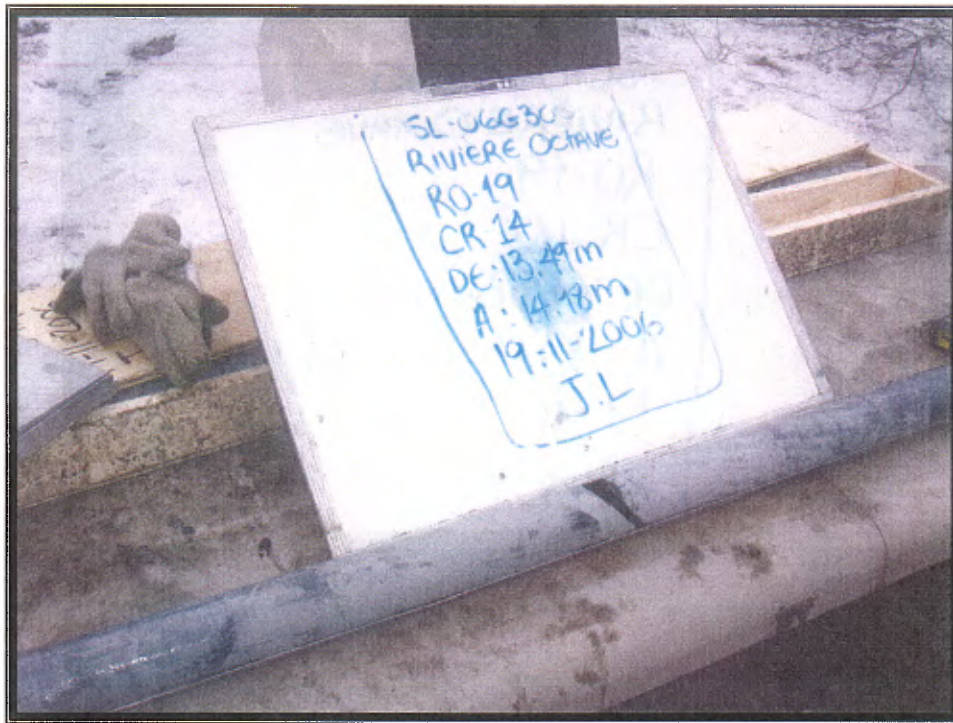 SL-06G30
RIVIERE OCTAVE
RO-19
CR 14
DE: 13.49m
A: 14.18m
19-11-2006
J.L